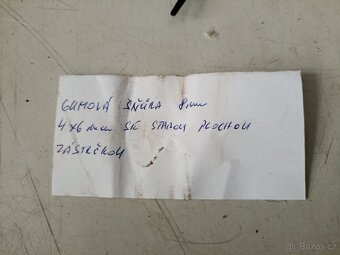 GUMOVÁ ŠŇŮRA 8mm
4x6mm SE STAROU PLOCHOU
ZÁSTRČKOU
bazos.cz